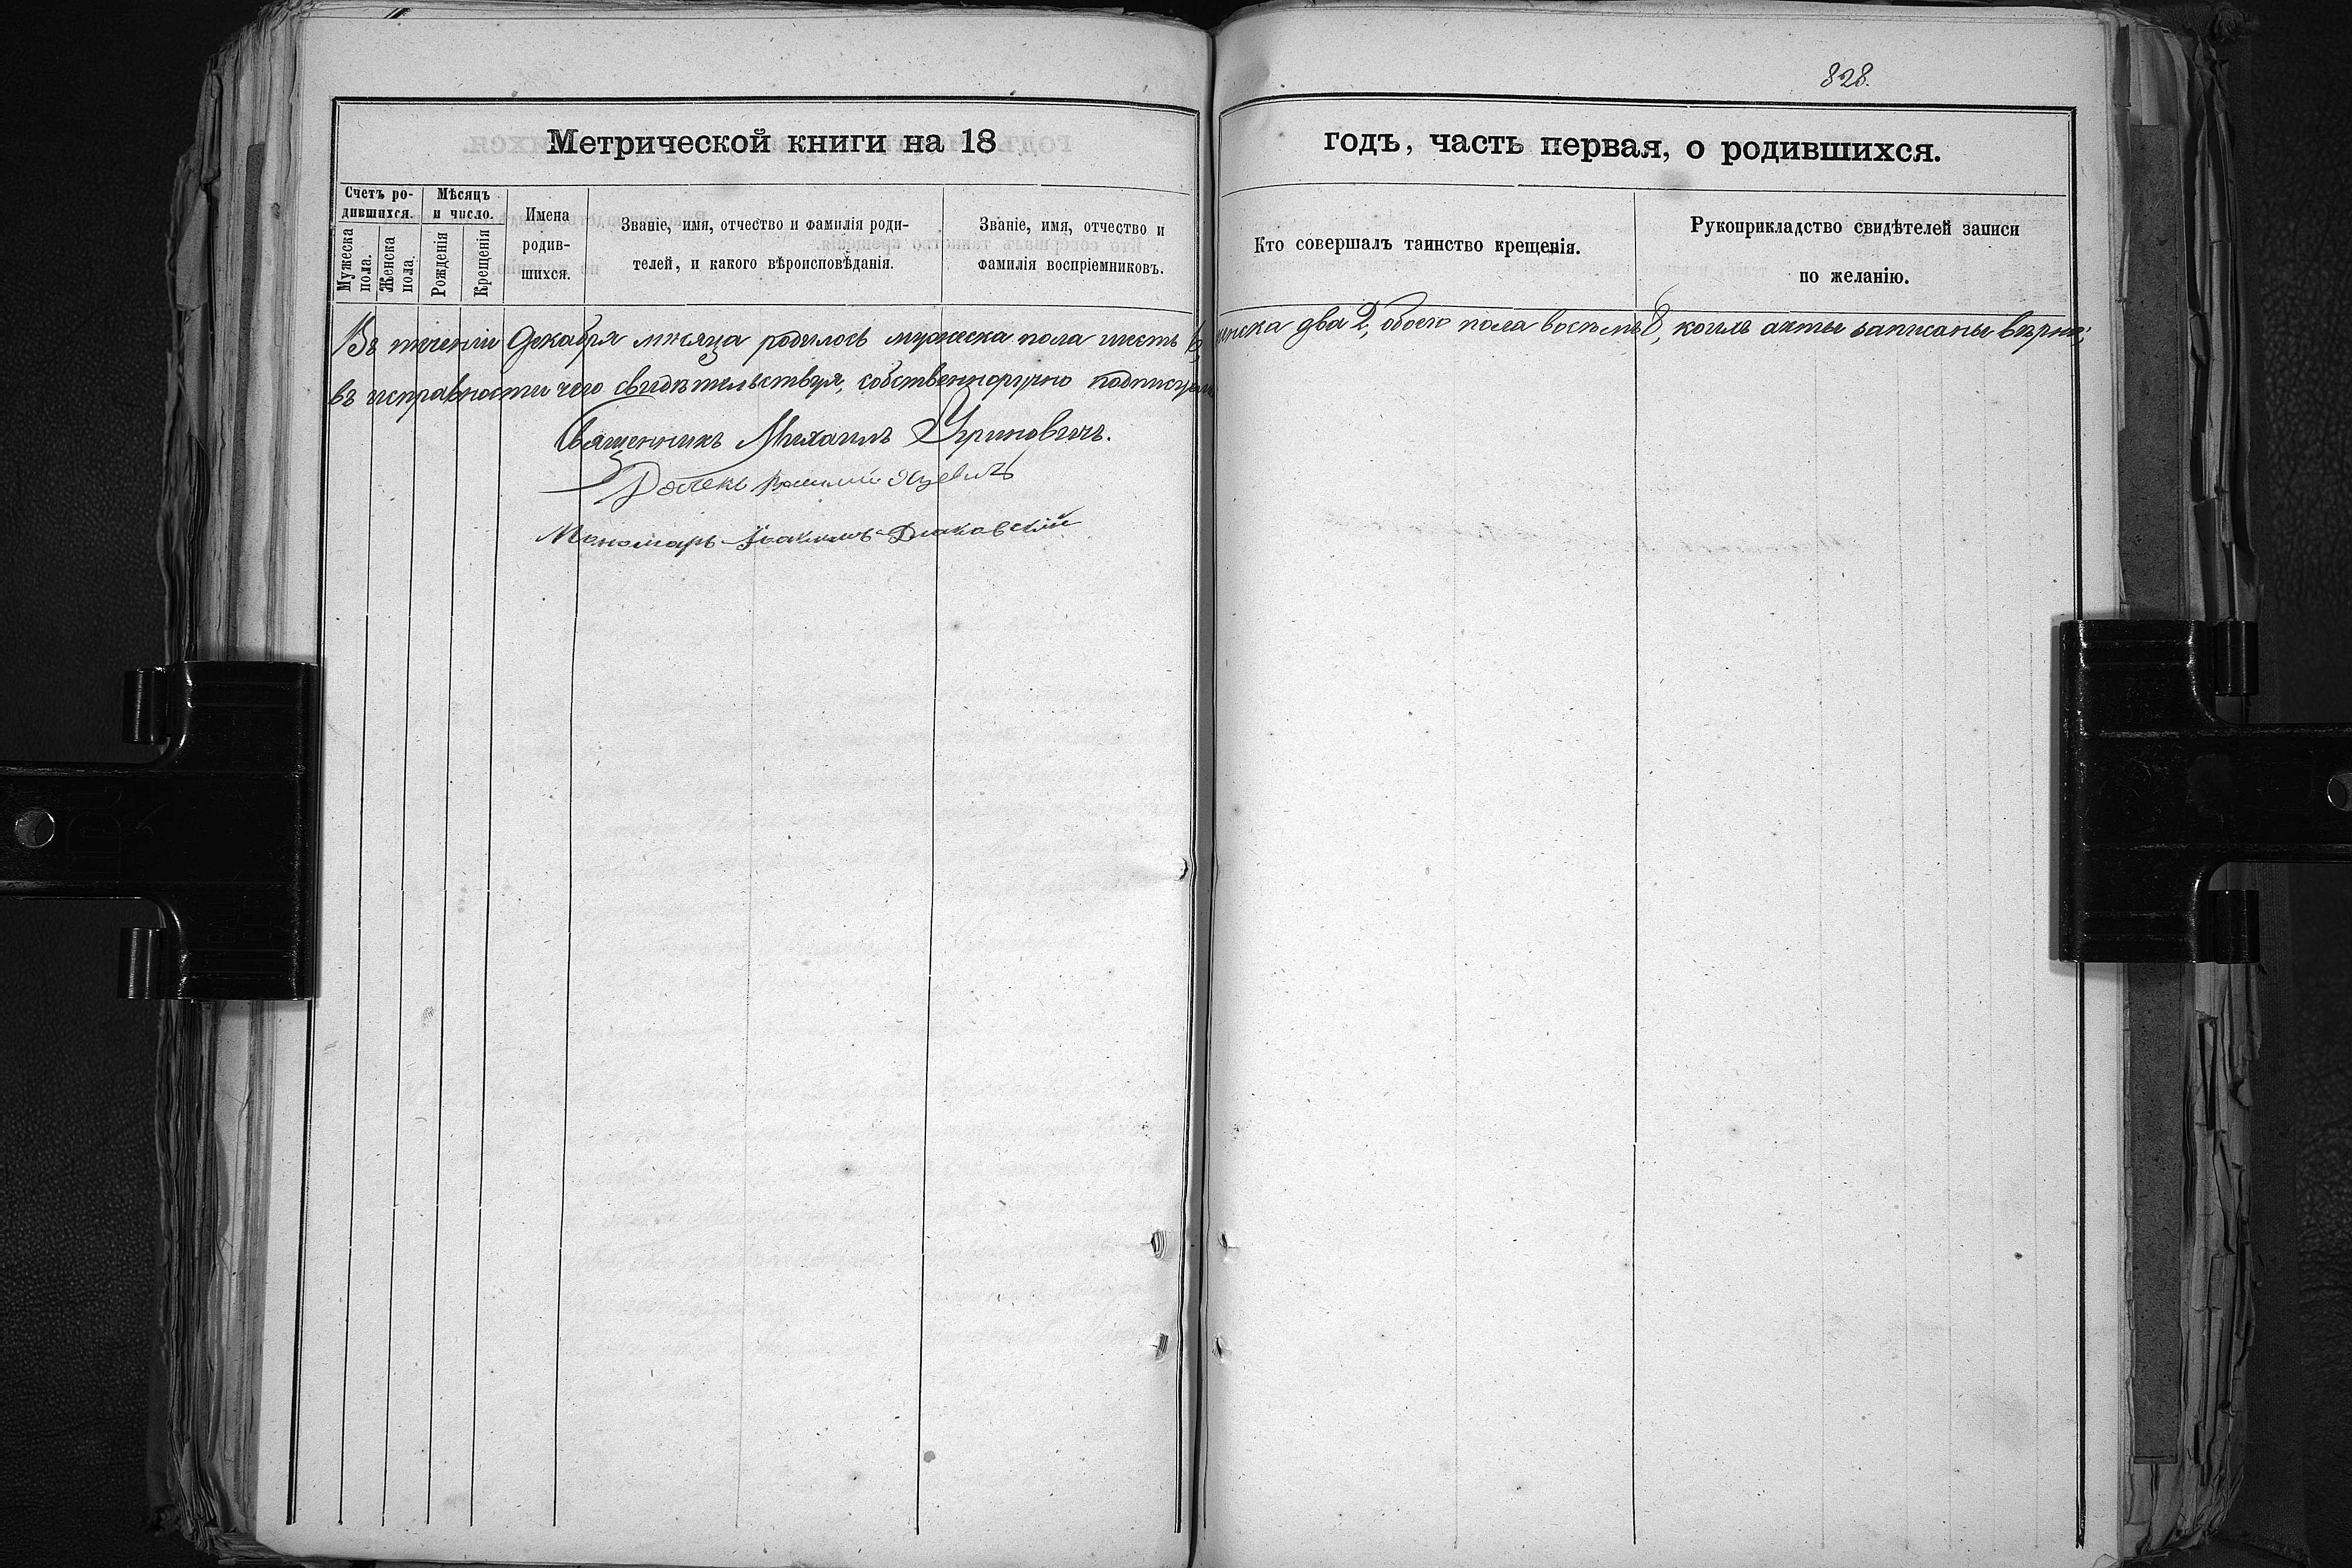 828.
Метрической книги на 18 годъ, часть первая, о родившихся.
Счетъ ро-
дившихся.
Мужеска
пола.
Женска
пола.
Мѣсяцъ
и число.
Рожденія
Крещенія
Имена
родив-
шихся.
Званіе, имя, отчество и фамилія роди-
телей, и какого вѣроисповѣданія.
Званіе, имя, отчество и
фамилія воспріемниковъ.
Кто совершалъ таинство крещенія.
Рукоприкладство свидѣтелей записи
по желанію.
Въ теченіи Декабря мѣсяца родилось мужеска пола шесть 6, женска два 2, обоего пола восемь 8, коихъ акты записаны вѣрно;
въ исправности чего свидѣтельствуя, собственноручно подписуемся
Священникъ Михаилъ Угриновичъ.
Дьячекъ Василій
Пономарь Іоакимъ Дьаковскій